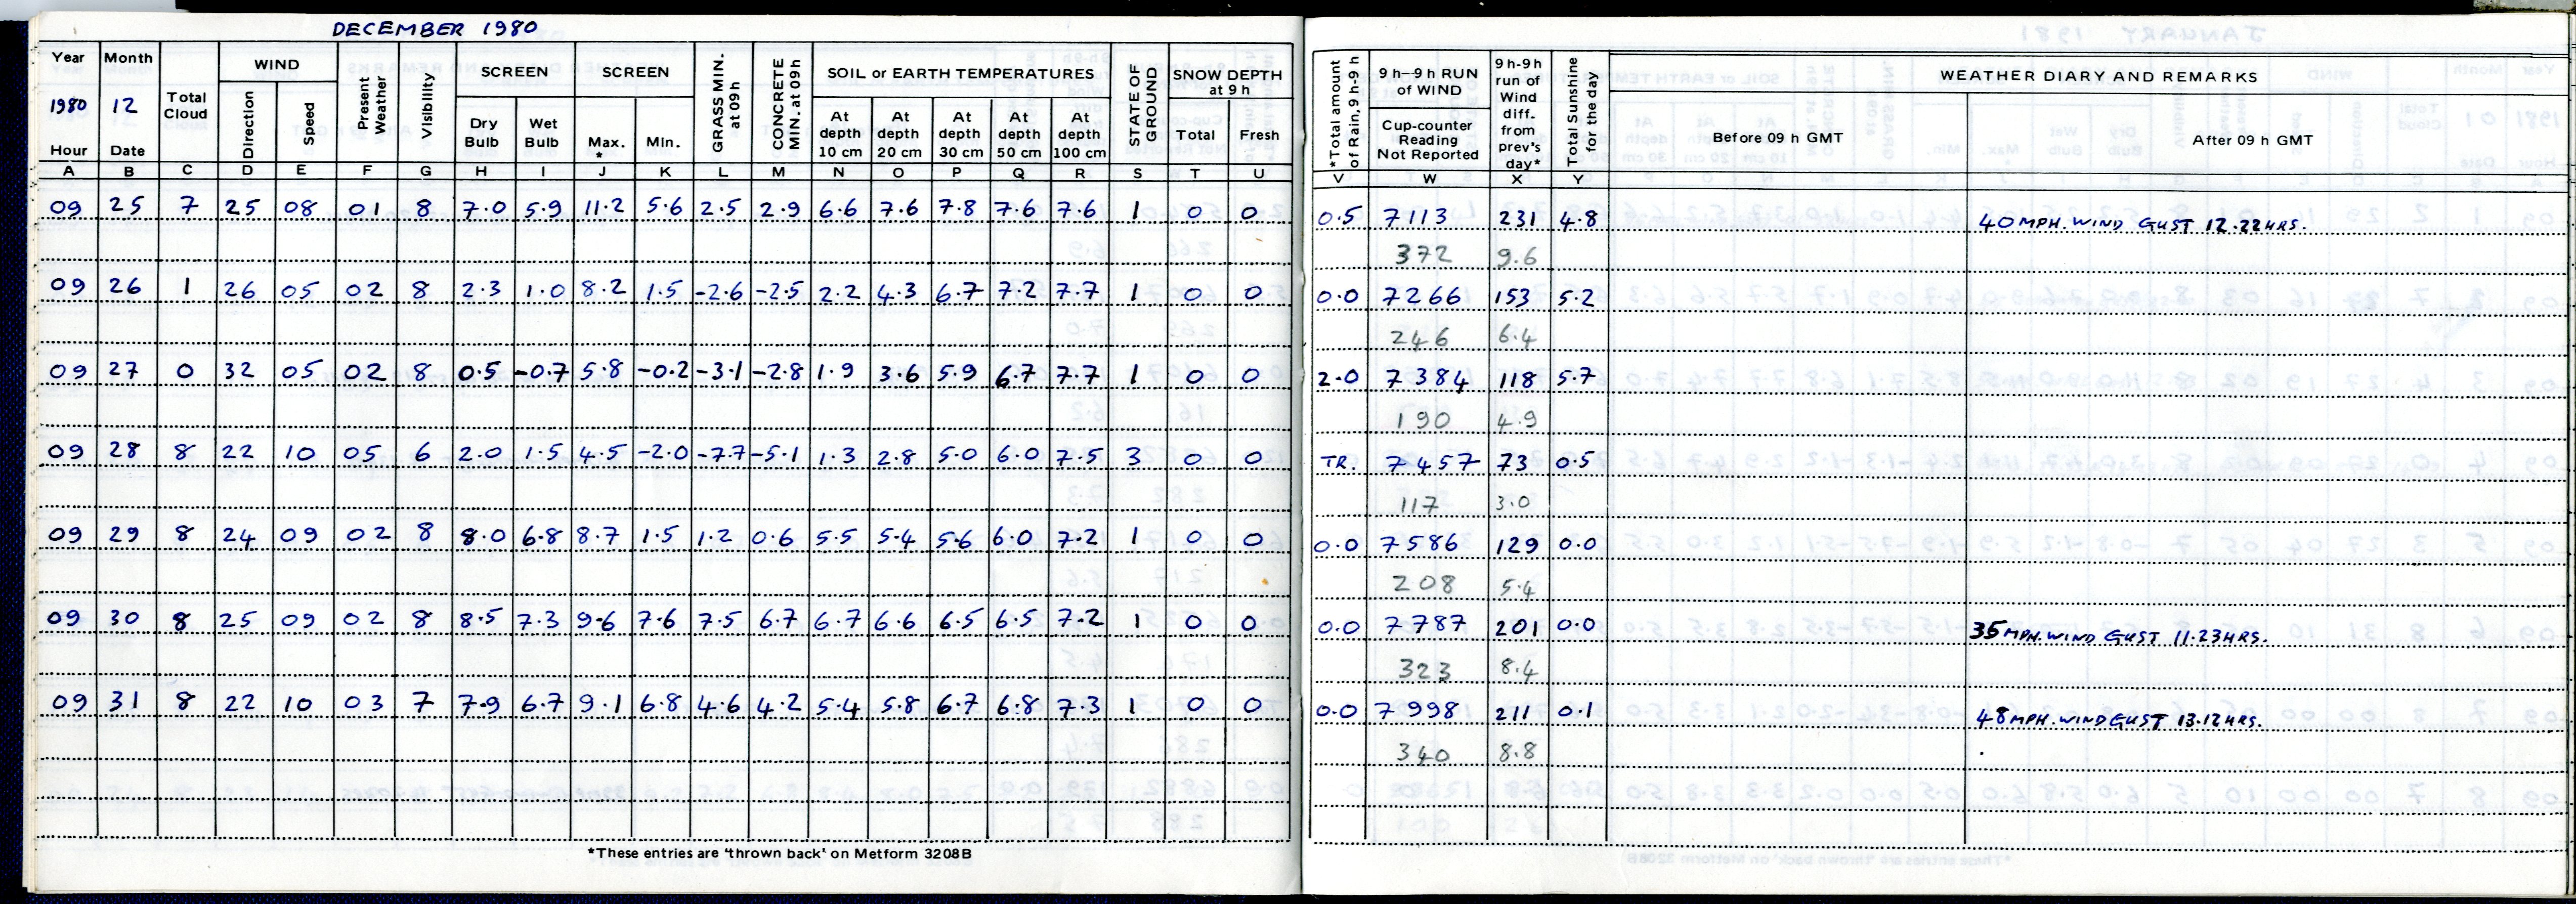 DECEMBER 1980
Year Month Total Cloud WIND Present Weather Visibility SCREEN SCREEN GRASS MIN. at 09h CONCRETE MIN. at 09h SOIL or EARTH TEMPERATURES STATE OF GROUND SNOW DEPTH at 9 h
1980 12 Direction Speed Dry Bulb Wet Bulb Max. * Min. At depth 10 cm At depth 20 cm At depth 30 cm At depth 50 cm At depth 100 cm Total Fresh
Hour Date
A B C D E F G H I J K L M N O P Q R S T U
09 25 7 25 08 01 8 7.0 5.9 11.2 5.6 2.5 2.9 6.6 7.6 7.8 7.6 7.6 1 0 0
09 26 1 26 05 02 8 2.3 1.0 8.2 1.5 -2.6 -2.5 2.2 4.3 6.7 7.2 7.7 1 0 0
09 27 0 32 05 02 8 0.5 -0.7 5.8 -0.2 -3.1 -2.8 1.9 3.6 5.9 6.7 7.7 1 0 0
09 28 8 22 10 05 6 2.0 1.5 4.5 -2.0 -7.7 -5.1 1.3 2.8 5.0 6.0 7.5 3 0 0
09 29 8 24 09 02 8 8.0 6.8 8.7 1.5 1.2 0.6 5.5 5.4 5.6 6.0 7.2 1 0 0
09 30 8 25 09 02 8 8.5 7.3 9.6 7.6 7.5 6.7 6.7 6.6 6.5 6.5 7.2 1 0 0
09 31 8 22 10 03 7 7.9 6.7 9.1 6.8 4.6 4.2 5.4 5.8 6.7 6.8 7.3 1 0 0
*These entries are 'thrown back' on Metform 3208B
*Total amount of Rain, 9 h-9 h 9 h–9 h RUN of WIND 9 h-9h run of Wind diff. from prev's day* Total Sunshine for the day WEATHER DIARY AND REMARKS
Cup-counter Reading Not Reported Before 09 h GMT After 09 h GMT
V W X Y
0.5 7113 231 4.8 40 MPH. WIND GUST 12.22 HRS.
372 9.6
0.0 7266 153 5.2
246 6.4
2.0 7384 118 5.7
190 4.9
TR. 7457 73 0.5
117 3.0
0.0 7586 129 0.0
208 5.4
0.0 7787 201 0.0 35 MPH. WIND GUST 11.23 HRS.
323 8.4
0.0 7998 211 0.1 48 MPH. WIND GUST 13.12 HRS.
340 8.8